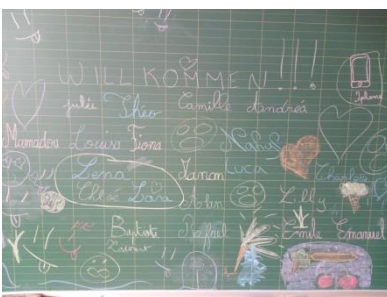 WILLKOMMEN!!!
Julie Théo Camille Andrea
Mamadou Louisa Fiona Nahul
Lena Janan Luca Charles
Lara Alan Lilly
Baptiste Raffael Emile Emanuel